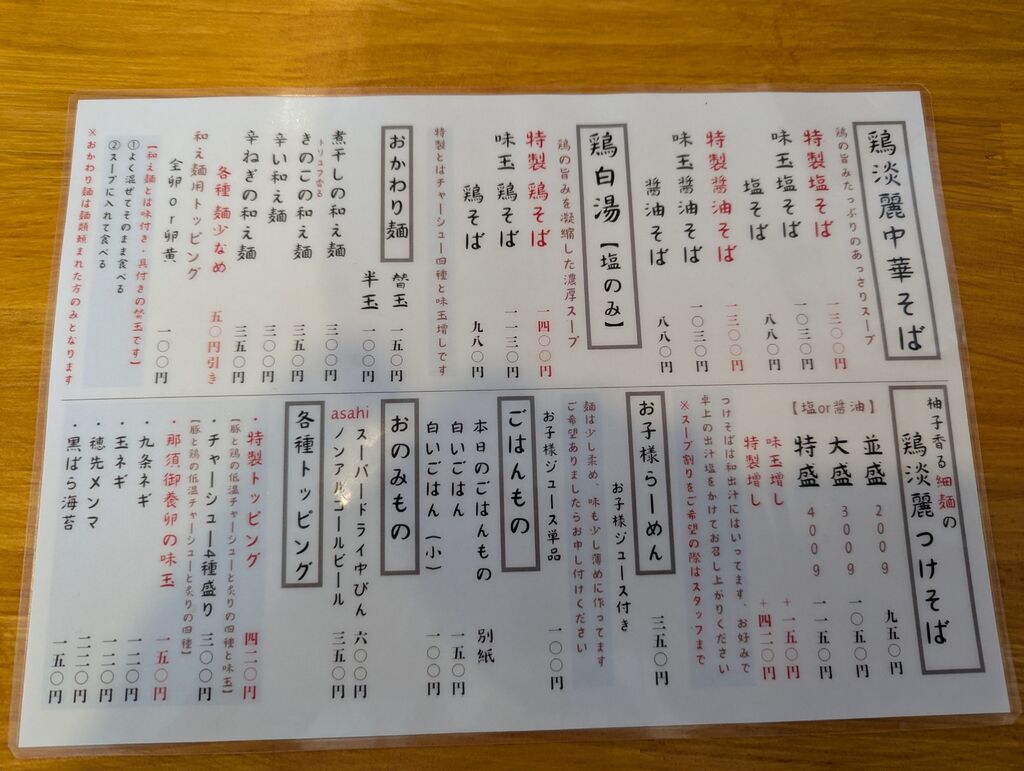 鶏淡麗中華そば
鶏の旨みたっぷりのあっさりスープ
特製塩そば 一三〇〇円
味玉塩そば 一〇三〇円
塩そば 八八〇円
特製醬油そば 一三〇〇円
味玉醬油そば 一〇三〇円
醬油そば 八八〇円
鶏白湯【塩のみ】
鶏の旨みを凝縮した濃厚スープ
特製 鶏そば 一四〇〇円
味玉 鶏そば 一一三〇円
鶏そば 九八〇円
特製とはチャーシュー四種と味玉増しです
おかわり麺
替玉 一五〇円
半玉 一〇〇円
煮干しの和え麺 三〇〇円
トリュフ香る
きのこの和え麺 三五〇円
辛い和え麺 三〇〇円
辛ねぎの和え麺 三五〇円
各種 麺少なめ 五〇円引き
和え麺用トッピング
全卵or卵黄 一〇〇円
【和え麺とは味付き・具付きの替玉です】
①よく混ぜてそのまま食べる
②スープに入れて食べる
※おかわり麺は麺類頼まれた方のみとなります
柚子香る細麺の
鶏淡麗つけそば
【塩or醤油】
並盛 200g 九五〇円
大盛 300g 一〇五〇円
特盛 400g 一一五〇円
味玉増し +一五〇円
特製増し +四二〇円
つけそばは和出汁にはいってます、お好みで
卓上の出汁塩をかけてお召し上がりください
※スープ割りをご希望の際はスタッフまで
お子様らーめん
お子様ジュース付き 三五〇円
麺は少し柔め、味も少し薄めに作ってます
ご希望ありましたらお申し付けください
お子様ジュース単品 一〇〇円
ごはんもの
本日のごはんもの 別紙
白いごはん 一五〇円
白いごはん(小) 一〇〇円
おのみもの
asahi
スーパードライ中びん 六〇〇円
ノンアルコールビール 三五〇円
各種トッピング
・特製トッピング 四二〇円
【豚と鶏の低温チャーシューと炙りの四種と味玉】
・チャーシュー4種盛り 三〇〇円
【豚と鶏の低温チャーシューと炙りの四種】
・那須御養卵の味玉 一五〇円
・九条ネギ 一二〇円
・玉ネギ 一〇〇円
・穂先メンマ 一二〇円
・黒ばら海苔 一五〇円